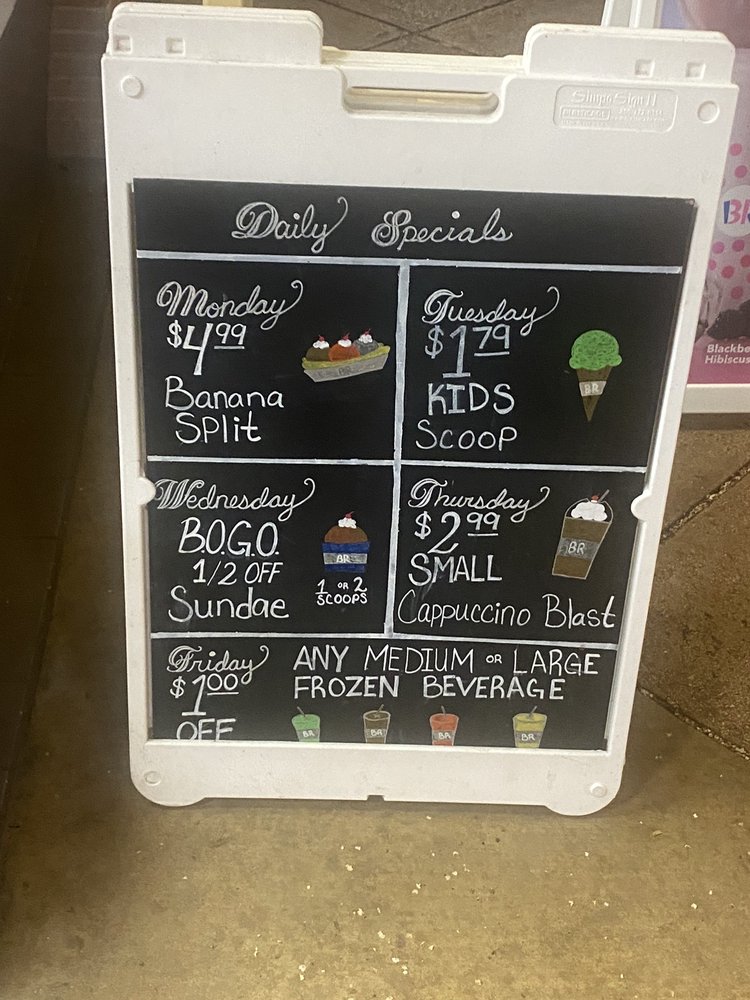 Simpo Sign II
Daily Specials
Monday
$4.99
Banana
Split
BR
Tuesday
$1.79
KIDS
Scoop
BR
Wednesday
B.O.G.O.
1/2 OFF
Sundae
BR
1 OR 2
SCOOPS
Thursday
$2.99
SMALL
Cappuccino Blast
BR
Friday
$1.00
OFF
ANY MEDIUM OR LARGE
FROZEN BEVERAGE
BR
BR
BR
BR
BR
Blackbe
Hibiscus